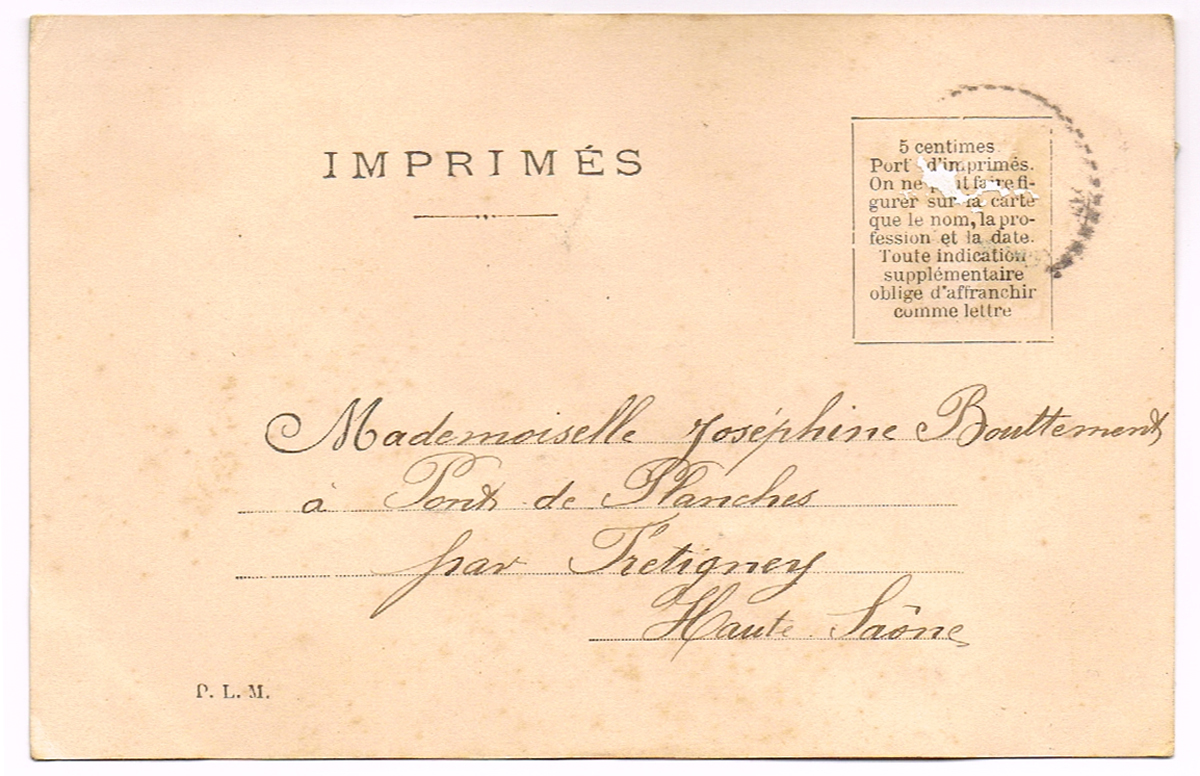 IMPRIMÉS
5 centimes
Port d'imprimés.
On ne faire fi-
gurer sur la carte
que le nom, la pro-
fession et la date.
Toute indication
supplémentaire
oblige d'affranchir
comme lettre
Mademoiselle Joséphine Bouttement
à Pont de Planches
par Fretigney
Haute Saône
P. L. M.